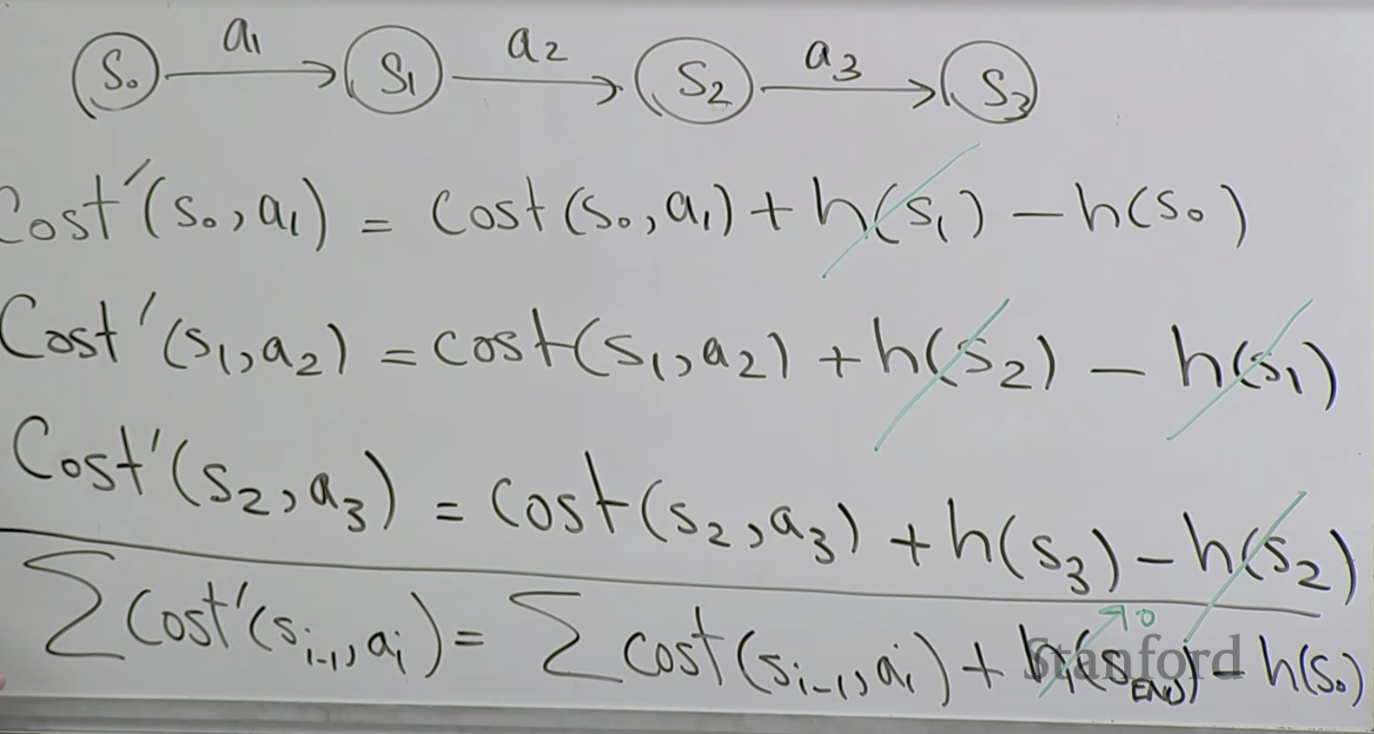 S₀ a₁ S₁ a₂ S₂ a₃ S₃
Cost'(s₀, a₁) = Cost(s₀, a₁) + h(s₁) − h(s₀)
Cost'(s₁, a₂) = cost(s₁, a₂) + h(s₂) − h(s₁)
Cost'(s₂, a₃) = Cost(s₂, a₃) + h(s₃) − h(s₂)
∑ Cost'(sᵢ₋₁, aᵢ) = ∑ cost(sᵢ₋₁, aᵢ) + h(s_END) − h(s₀)
0
Stanford